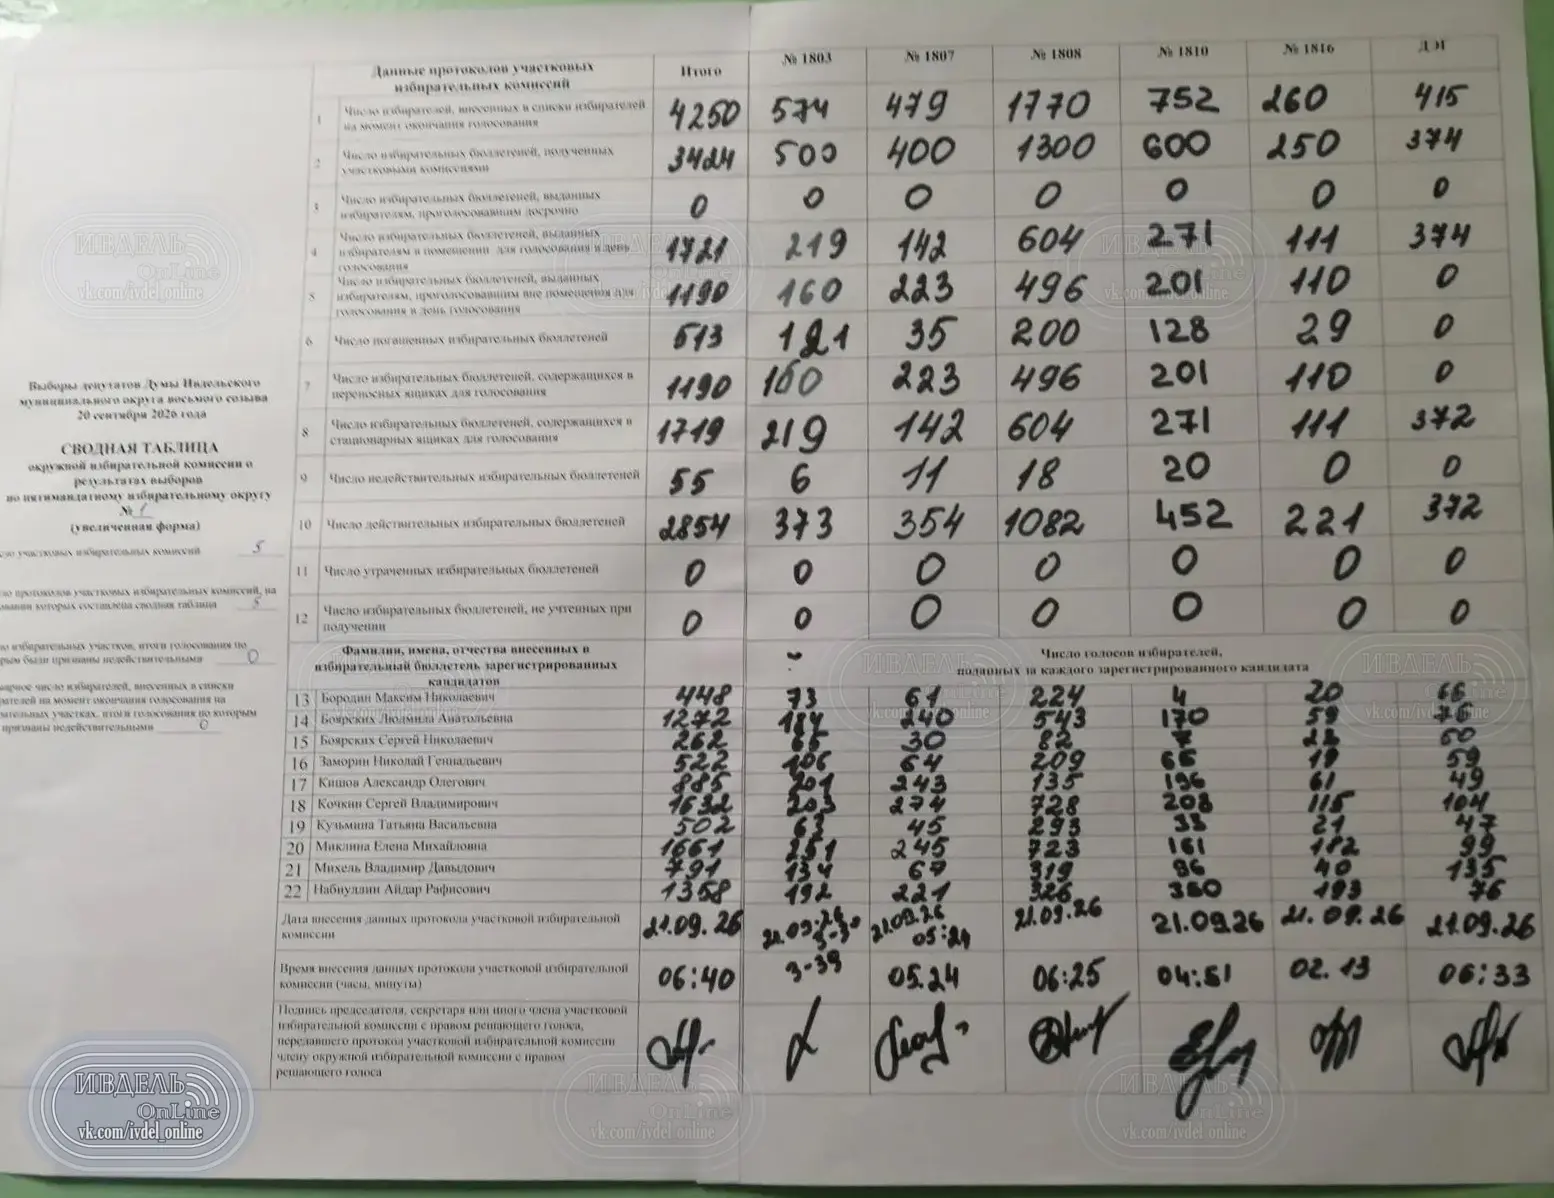 Данные протоколов участковых избирательных комиссий Итого № 1803 № 1807 № 1808 № 1810 № 1816 ДЭГ
1 Число избирателей, внесенных в списки избирателей на момент окончания голосования 4250 574 479 1770 752 260 415
2 Число избирательных бюллетеней, полученных участковыми комиссиями 3424 500 400 1300 600 250 374
3 Число избирательных бюллетеней, выданных избирателям, проголосовавшим досрочно 0 0 0 0 0 0 0
4 Число избирательных бюллетеней, выданных избирателям в помещении для голосования в день голосования 1721 219 142 604 271 111 374
5 Число избирательных бюллетеней, выданных избирателям, проголосовавшим вне помещения для голосования в день голосования 1190 160 223 496 201 110 0
6 Число погашенных избирательных бюллетеней 513 121 35 200 128 29 0
7 Число избирательных бюллетеней, содержащихся в переносных ящиках для голосования 1190 160 223 496 201 110 0
8 Число избирательных бюллетеней, содержащихся в стационарных ящиках для голосования 1719 219 142 604 271 111 372
9 Число недействительных избирательных бюллетеней 55 6 11 18 20 0 0
10 Число действительных избирательных бюллетеней 2854 373 354 1082 452 221 372
11 Число утраченных избирательных бюллетеней 0 0 0 0 0 0 0
12 Число избирательных бюллетеней, не учтенных при получении 0 0 0 0 0 0 0
Фамилии, имена, отчества внесенных в избирательный бюллетень зарегистрированных кандидатов
Число голосов избирателей, поданных за каждого зарегистрированного кандидата
13 Бородин Максим Николаевич 448 73 61 224 4 20 66
14 Боярских Людмила Анатольевна 1272 184 240 543 170 59 76
15 Боярских Сергей Николаевич 262 30 82 7 60
16 Заморин Николай Геннадьевич 522 106 64 209 66 19 59
17 Кишов Александр Олегович 885 201 243 135 196 61 49
18 Кочкин Сергей Владимирович 1632 203 274 728 208 115 104
19 Кузьмина Татьяна Васильевна 502 63 45 293 33 21 47
20 Миклина Елена Михайловна 1661 251 245 723 161 182 99
21 Михель Владимир Давыдович 791 134 67 319 96 40 135
22 Набиуллин Айдар Рафисович 1358 192 221 326 350 193 76
Дата внесения данных протокола участковой избирательной комиссии 21.09.26 21.09.26 3-39 21.09.26 05:24 21.09.26 21.09.26 21.09.26 21.09.26
Время внесения данных протокола участковой избирательной комиссии (часы, минуты) 06:40 3-39 05.24 06:25 04:51 02.13 06:33
Подпись председателя, секретаря или иного члена участковой избирательной комиссии с правом решающего голоса, передавшего протокол участковой избирательной комиссии члену окружной избирательной комиссии с правом решающего голоса
Выборы депутатов Думы Ивдельского
муниципального округа восьмого созыва
20 сентября 2026 года
СВОДНАЯ ТАБЛИЦА
окружной избирательной комиссии о
результатах выборов
по пятимандатному избирательному округу
№ 1
(увеличенная форма)
участковых избирательных комиссий 5
протоколов участковых избирательных комиссий, на
которых составлена сводная таблица 5
избирательных участков, итоги голосования по
были признаны недействительными 0
число избирателей, внесенных в списки
на момент окончания голосования на
участках, итоги голосования по которым
признаны недействительными 0
ИВДЕЛЬ
OnLine
vk.com/ivdel_online